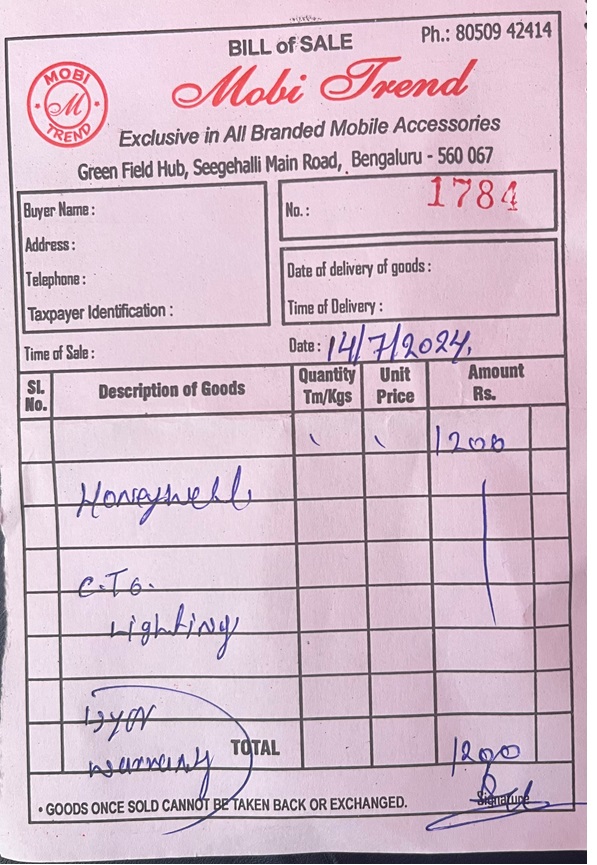 BILL of SALE
Ph.: 80509 42414
MOBI
M
TREND
Mobi Trend
Exclusive in All Branded Mobile Accessories
Green Field Hub, Seegehalli Main Road, Bengaluru - 560 067
Buyer Name :
No.: 1784
Address :
Telephone :
Date of delivery of goods :
Taxpayer Identification :
Time of Delivery :
Time of Sale :
Date : 14/7/2024.
Sl. No. Description of Goods Quantity Tm/Kgs Unit Price Amount Rs.
1200
Honeywell
Lighting
warranty
TOTAL 1200
• GOODS ONCE SOLD CANNOT BE TAKEN BACK OR EXCHANGED.
Signature